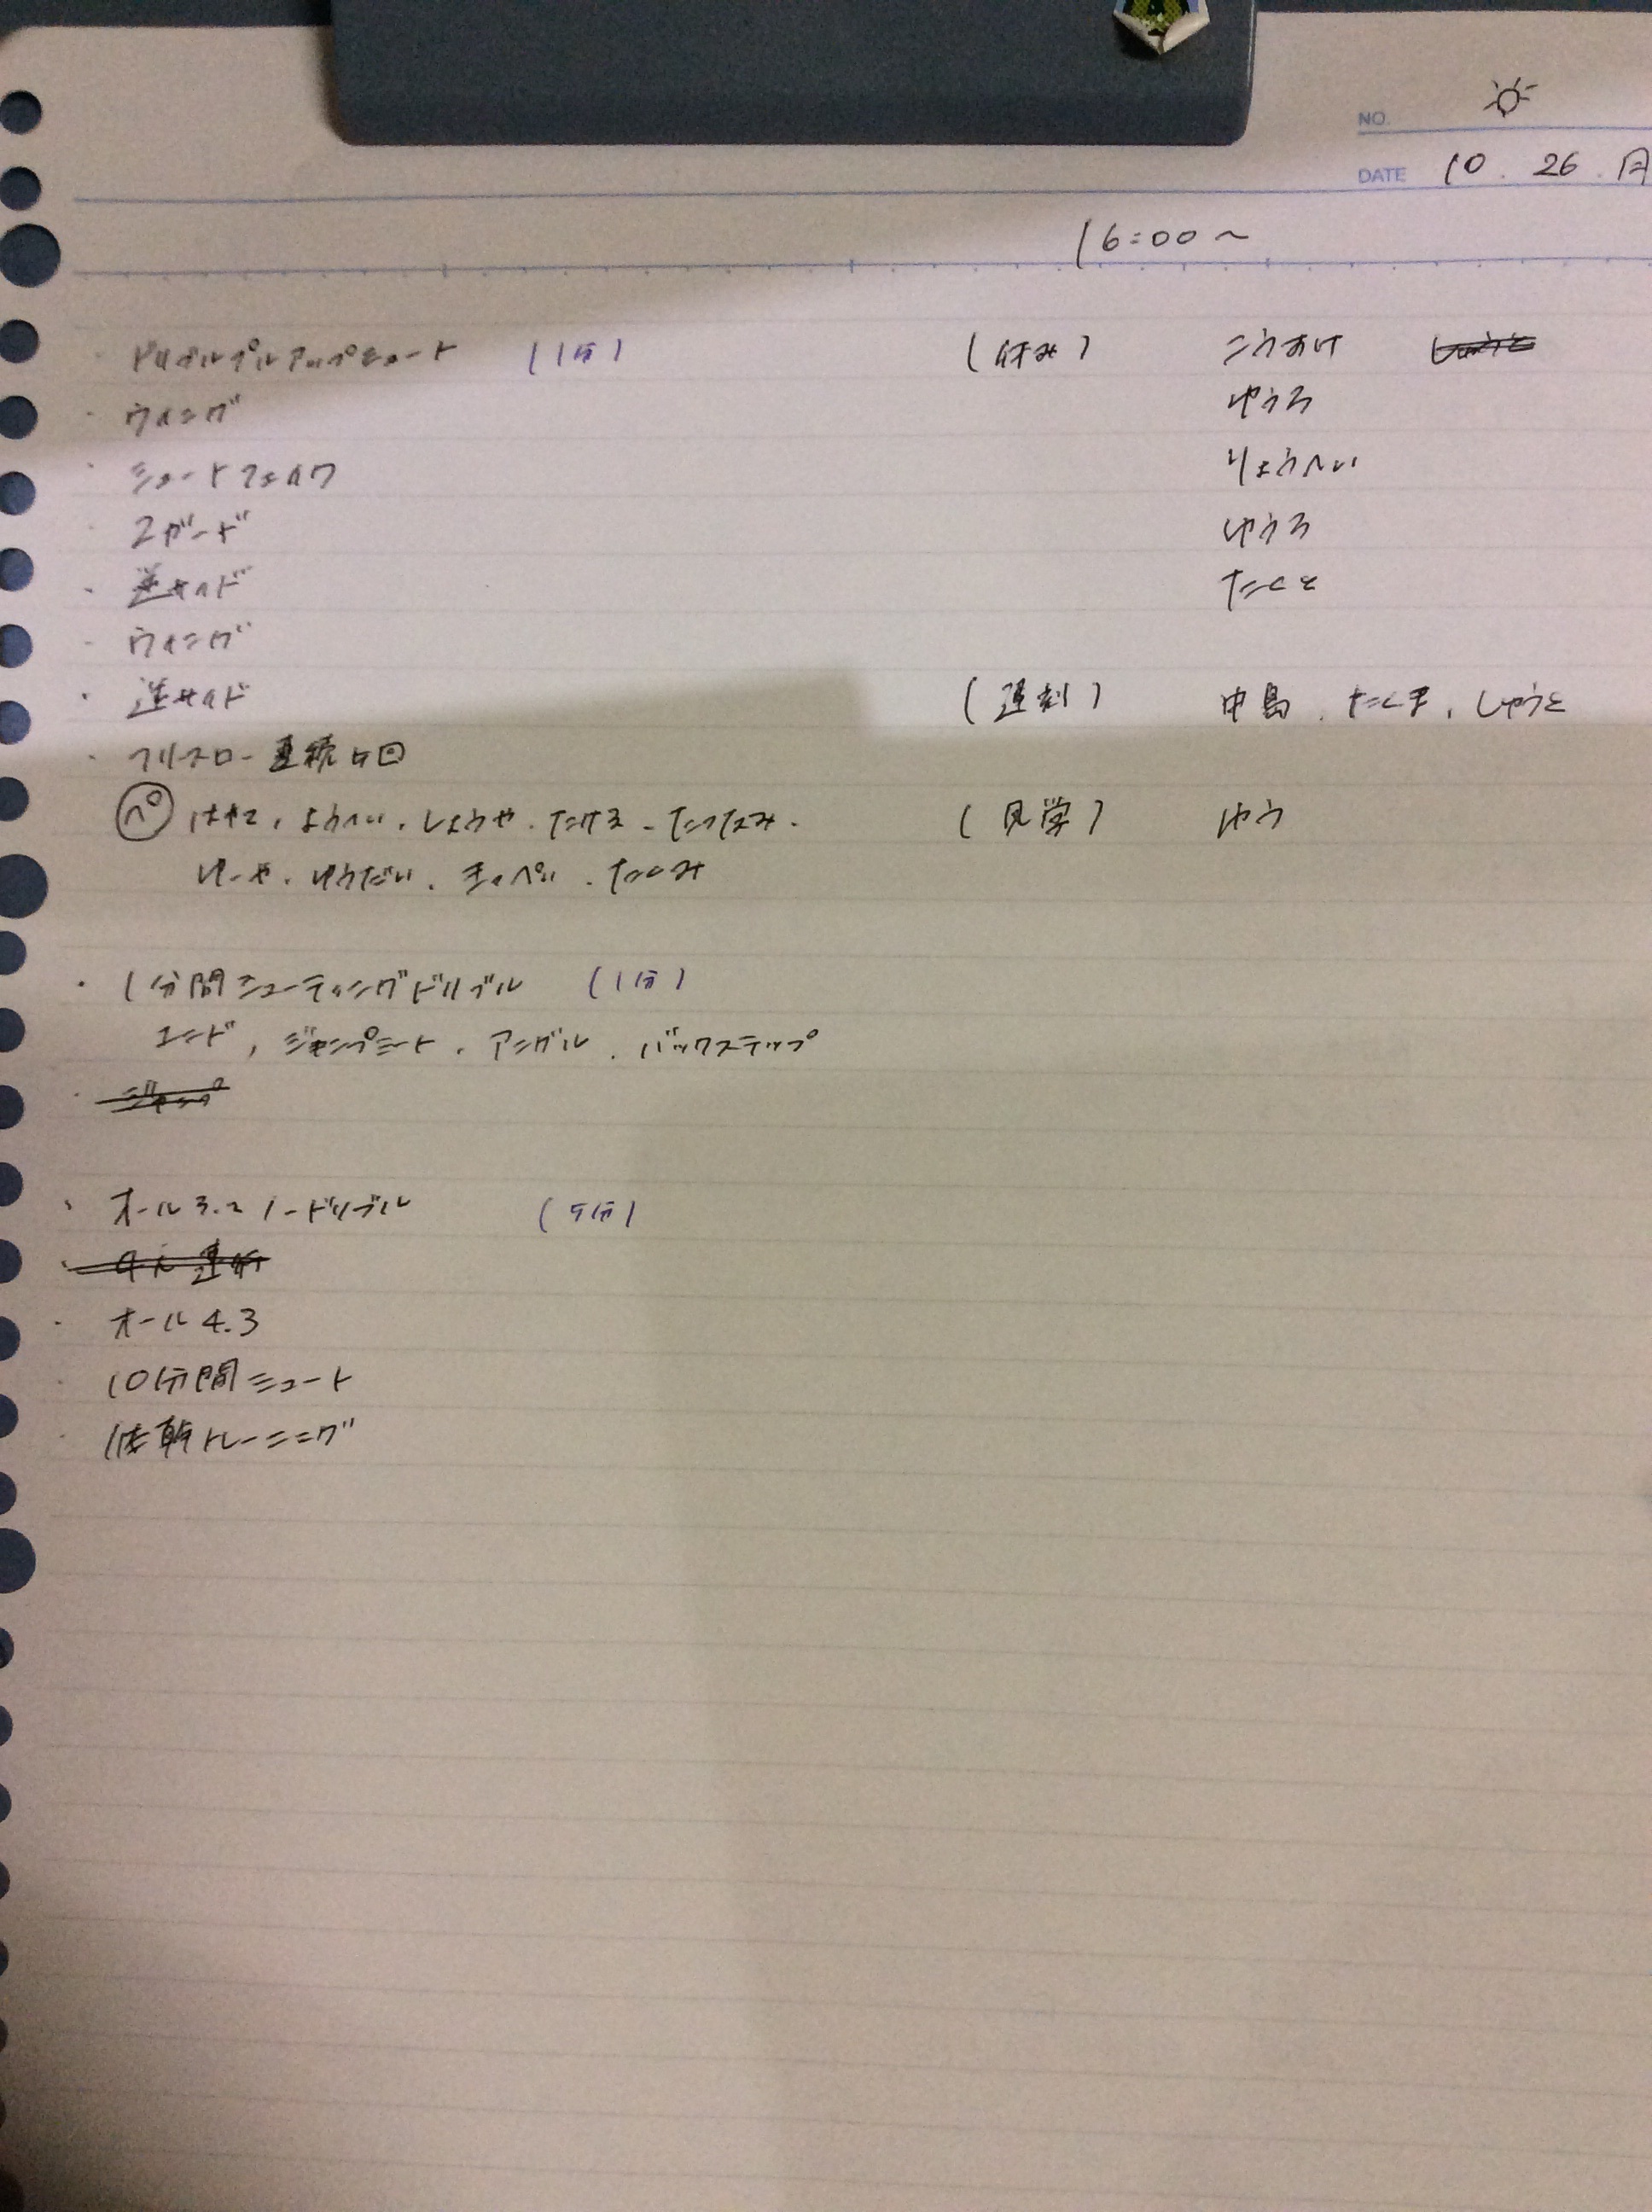 NO.
DATE 10. 26. 月
16:00〜
・ドリブルプルアップシュート (1分)
・ウィング
・シュートフェイク
・2ガード
・逆サイド
・ウィング
・逆サイド
・フリースロー連続5回
ペ はやて、ようへい、しょうや、たける、たつなみ、
ゆーや、ゆうだい、きっぺい、たくみ
・1分間シューティングドリブル (1分)
エンド、ジャンプシュート、アングル、バックステップ
・オール3.2ノードリブル (5分)
・オール4.3
・10分間シュート
・体幹トレーニング
(休み) こうすけ
ゆうろ
りょうへい
ゆうろ
たくと
(遅刻) 中島、たくま、しゅうと
(見学) ゆう